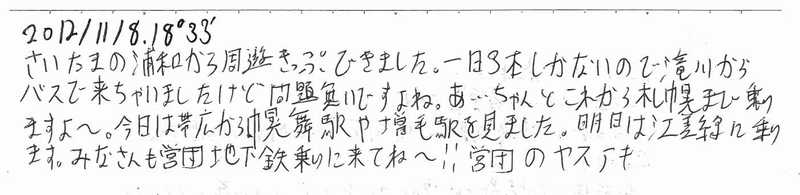 2012/11/8.18°33′
さいたまの浦和から周遊きっぷできました。一日3本しかないので滝川から
バスで来ちゃいましたけど問題無いですよね。あ…ちゃんとこれから札幌まで乗り
ますよ〜。今日は帯広から幌舞駅や増毛駅を見ました。明日は江差線に乗り
ます。みなさんも営団地下鉄乗りに来てね〜!! 営団のヤスシも